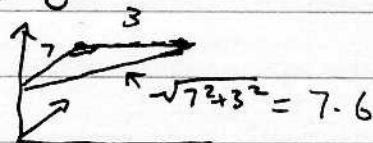 3
7
√7²+3² = 7.6